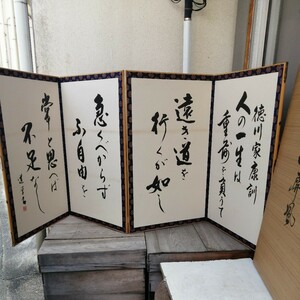 徳川家康訓
人の一生は
重荷を負うて
遠き道を
行くが如し
急ぐべからず
不自由を
常と思へば
不足なし